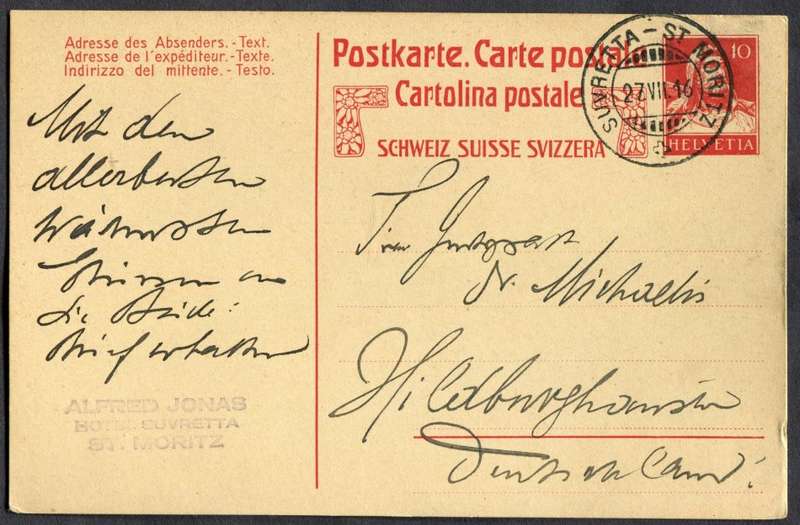 Adresse des Absenders.-Text.
Adresse de l'expéditeur.-Texte.
Indirizzo del mittente.-Testo.
Postkarte. Carte postale
Cartolina postale
SCHWEIZ SUISSE SVIZZERA
SUVRETTA - ST MORITZ
27.VII.16
10
HELVETIA
Mit den
allerbesten
wärmsten
Grüssen an
Sie Beide:
Brief erhalten
ALFRED JONAS
HOTEL SUVRETTA
ST. MORITZ
Dr. Michaelis
Hildburghausen
Deutschland